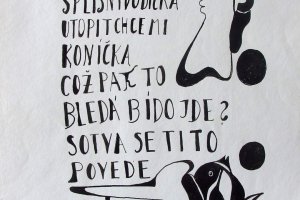 SPLÍSNIVODIČKA
UTOPITCHCEMI
KONÍČKA
COŽ PAK TO
BLEDÁ BÍDO JDE?
SOTVA SE TI TO
POVEDE